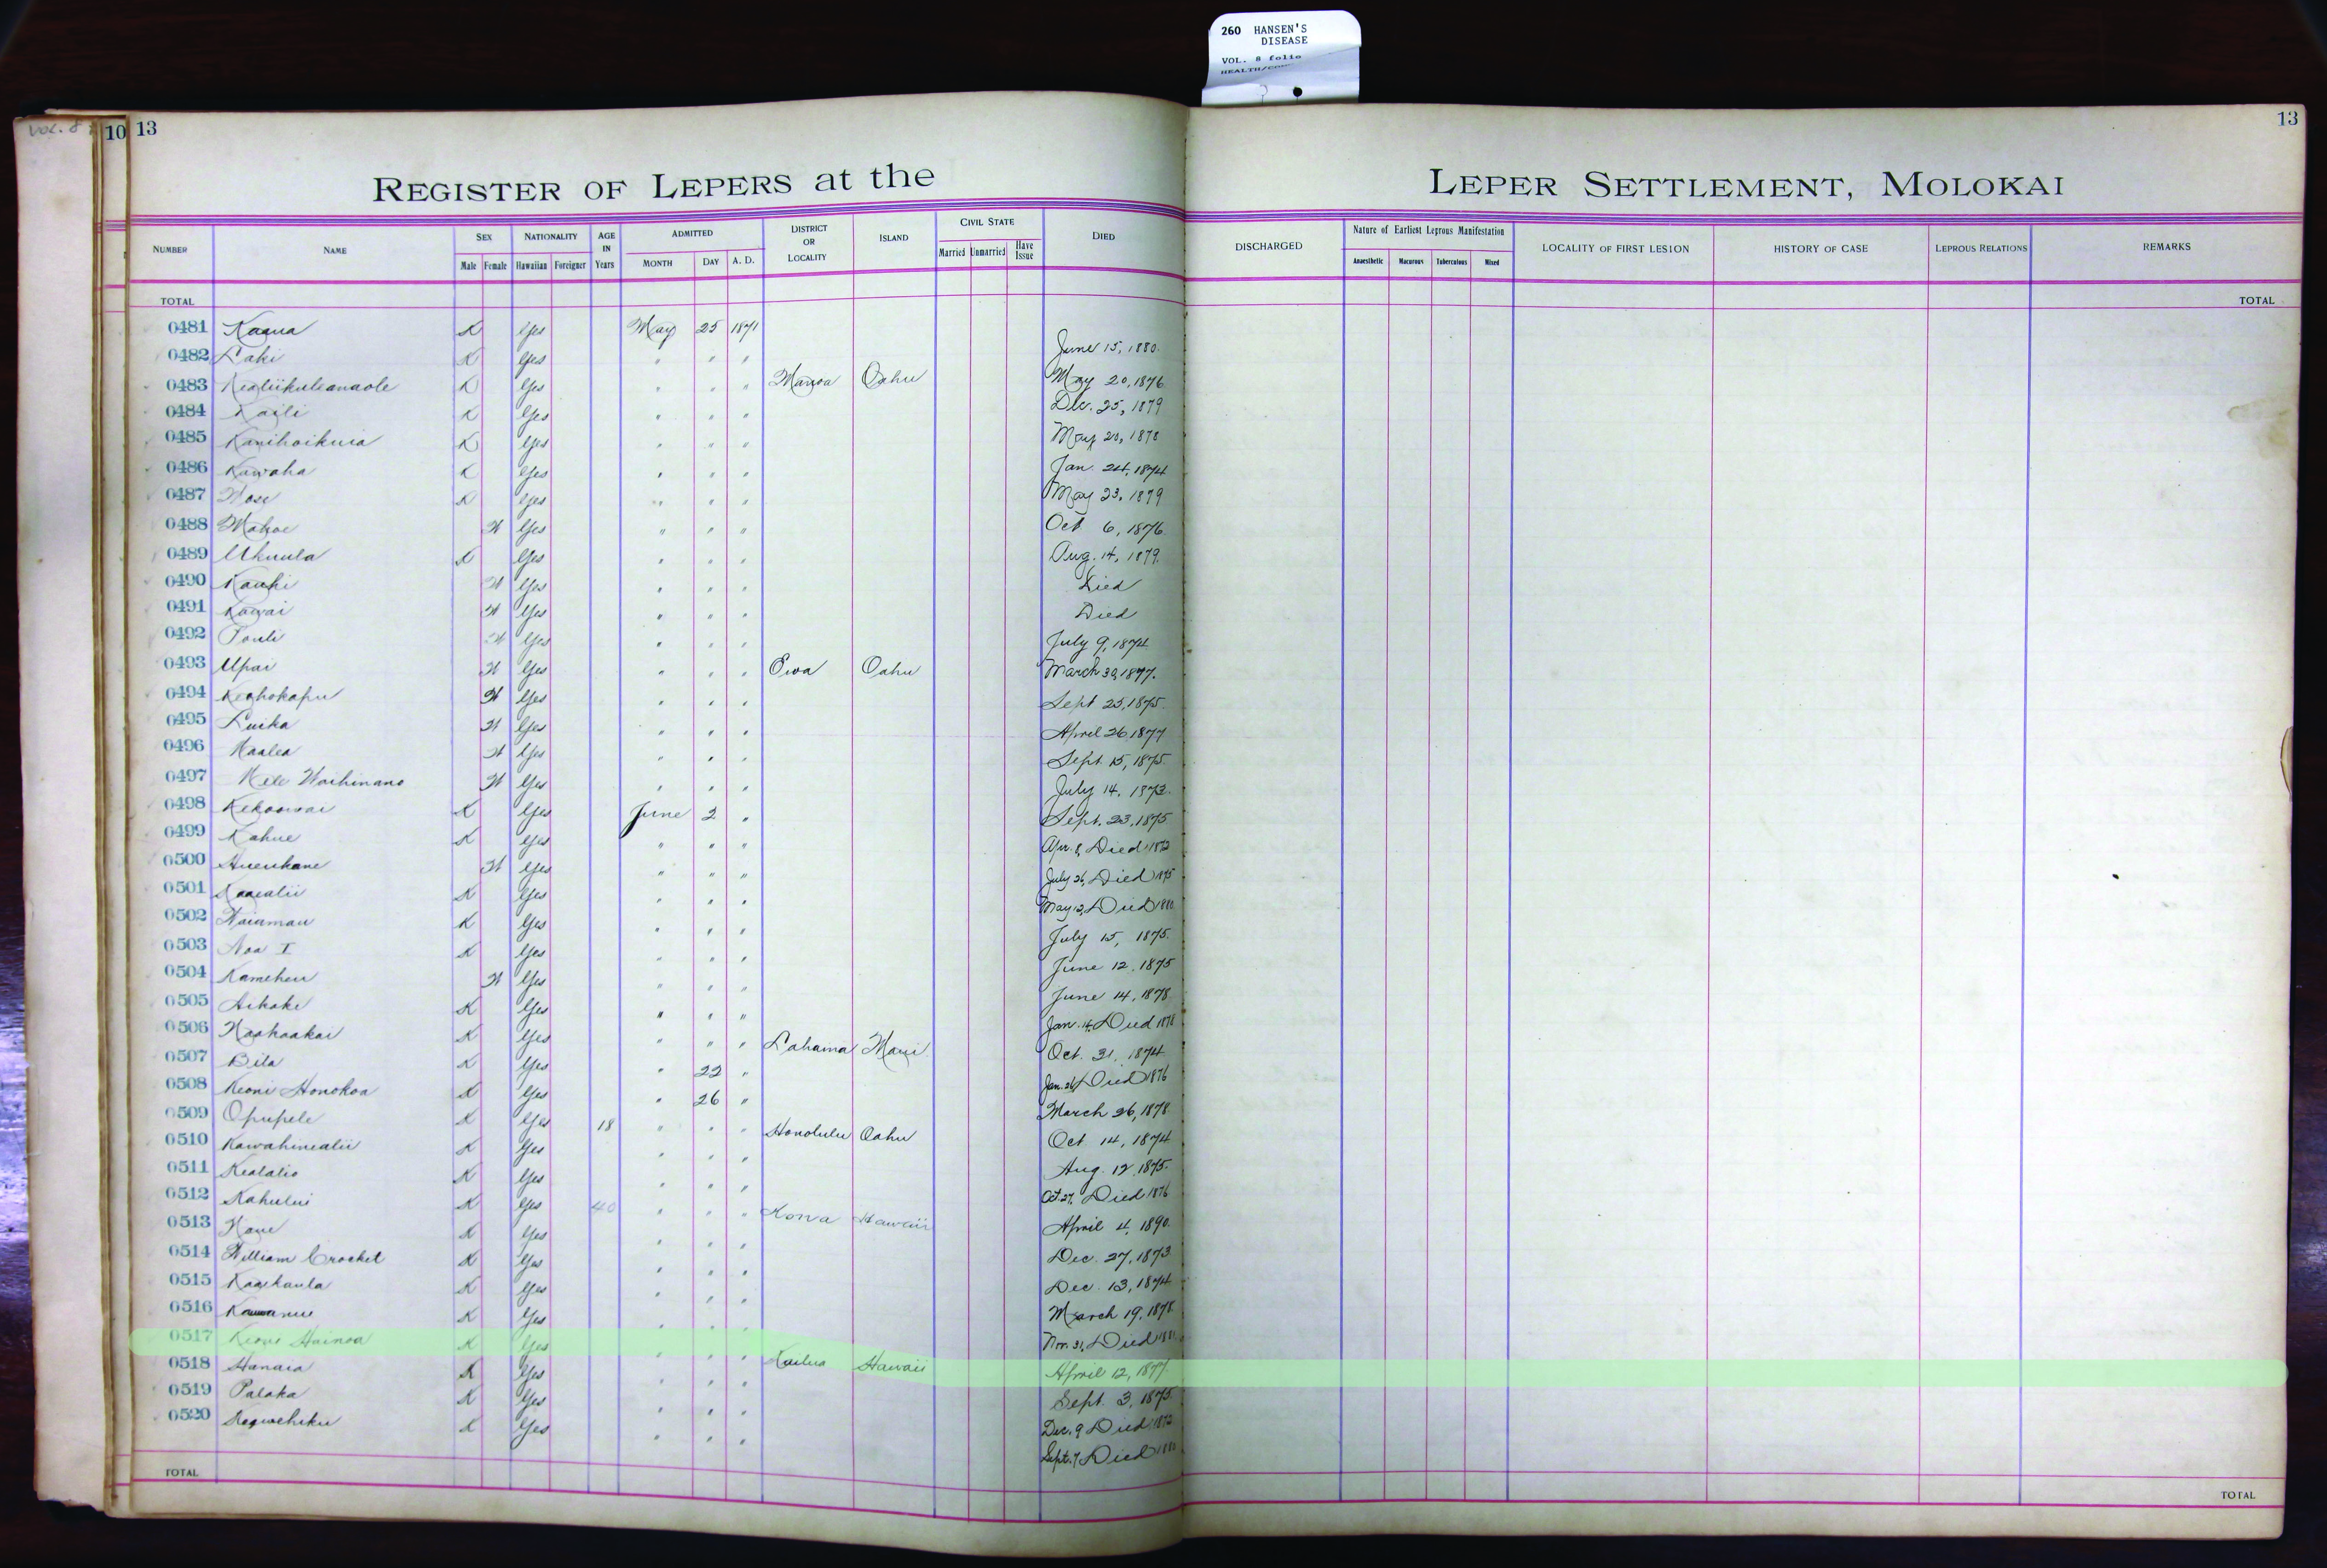 260 HANSEN'S
DISEASE
VOL. 8 folio
VOL. 8
10 13
13
REGISTER OF LEPERS at the LEPER SETTLEMENT, MOLOKAI
NUMBER NAME SEX Male Female NATIONALITY Hawaiian Foreigner AGE IN Years ADMITTED MONTH DAY A. D. DISTRICT OR LOCALITY ISLAND CIVIL STATE Married Unmarried Have Issue DIED DISCHARGED Nature of Earliest Leprous Manifestation Anaesthetic Macurous Tuberculous Mixed LOCALITY OF FIRST LESION HISTORY OF CASE LEPROUS RELATIONS REMARKS
TOTAL TOTAL
0481 Kaaua K Yes May 25 1871 June 15, 1880.
0482 Laki K Yes " " " May 20, 1876
0483 Kealiikuleanaole K Yes " " " Manoa Oahu Dec. 25, 1879
0484 Kaili K Yes " " " May 20, 1878
0485 Kanihoikuia K Yes " " " Jan. 24, 1874
0486 Kawaha K Yes " " " May 23, 1879
0487 K Yes " " " Oct 6, 1876.
0488 Mahoe W Yes " " " Aug. 14, 1879.
0489 Ukuula K Yes " " " Died
0490 Kauhi W Yes " " " Died
0491 Kawai W Yes " " " July 9, 1874
0492 Pouli W Yes " " " March 30, 1877.
0493 Upai W Yes " " " Ewa Oahu Sept 25, 1875.
0494 Keohokapu W Yes " " " April 26 1877
0495 Luika W Yes " " " Sept. 15, 1875.
0496 Maalea W Yes " " " July 14, 1873.
0497 Mele Waihinano W Yes " " " Sept. 23, 1875
0498 Kekoowai K Yes June 2 " Apr. 8, Died 1872
0499 Kahue K Yes " " " July 26, Died 1875
0500 W Yes " " " May 12, Died 1880
0501 Kaaealii K Yes " " " July 15, 1875.
0502 Waiamau K Yes " " " June 12. 1875
0503 Noa I K Yes " " " June 14, 1878
0504 Kameheu W Yes " " " Jan. 14, Died 1878
0505 Aikake K Yes " " " Oct. 31, 1874
0506 Naahaakai K Yes " " " Lahaina Maui Jan. 26, Died 1876
0507 Bila K Yes " 22 " March 26, 1878.
0508 Keoni Honokoa K Yes " 26 " Oct 14, 1874
0509 Opupele K Yes 18 " " " Honolulu Oahu Aug. 12. 1875.
0510 Kawahinealii K Yes " " " Oct. 27, Died 1876
0511 Kealalio K Yes " " " April 4, 1890.
0512 Kahului K Yes 40 " " " Kona Hawaii Dec. 27, 1873.
0513 K Yes " " " Dec. 13, 1874
0514 William Crocket K Yes " " " March 19, 1878.
0515 Kaaikaula K Yes " " " Nov. 31, Died 1881
0516 K Yes " " " April 12, 1877.
0517 Keoni Hainoa K Yes " " " Kailua Hawaii Sept. 3, 1875.
0518 Hanaia K Yes " " " Dec. 9 Died 1872
0519 Palaka K Yes " " " Sept. 7, Died 1880
0520 K Yes " " "
TOTAL TOTAL